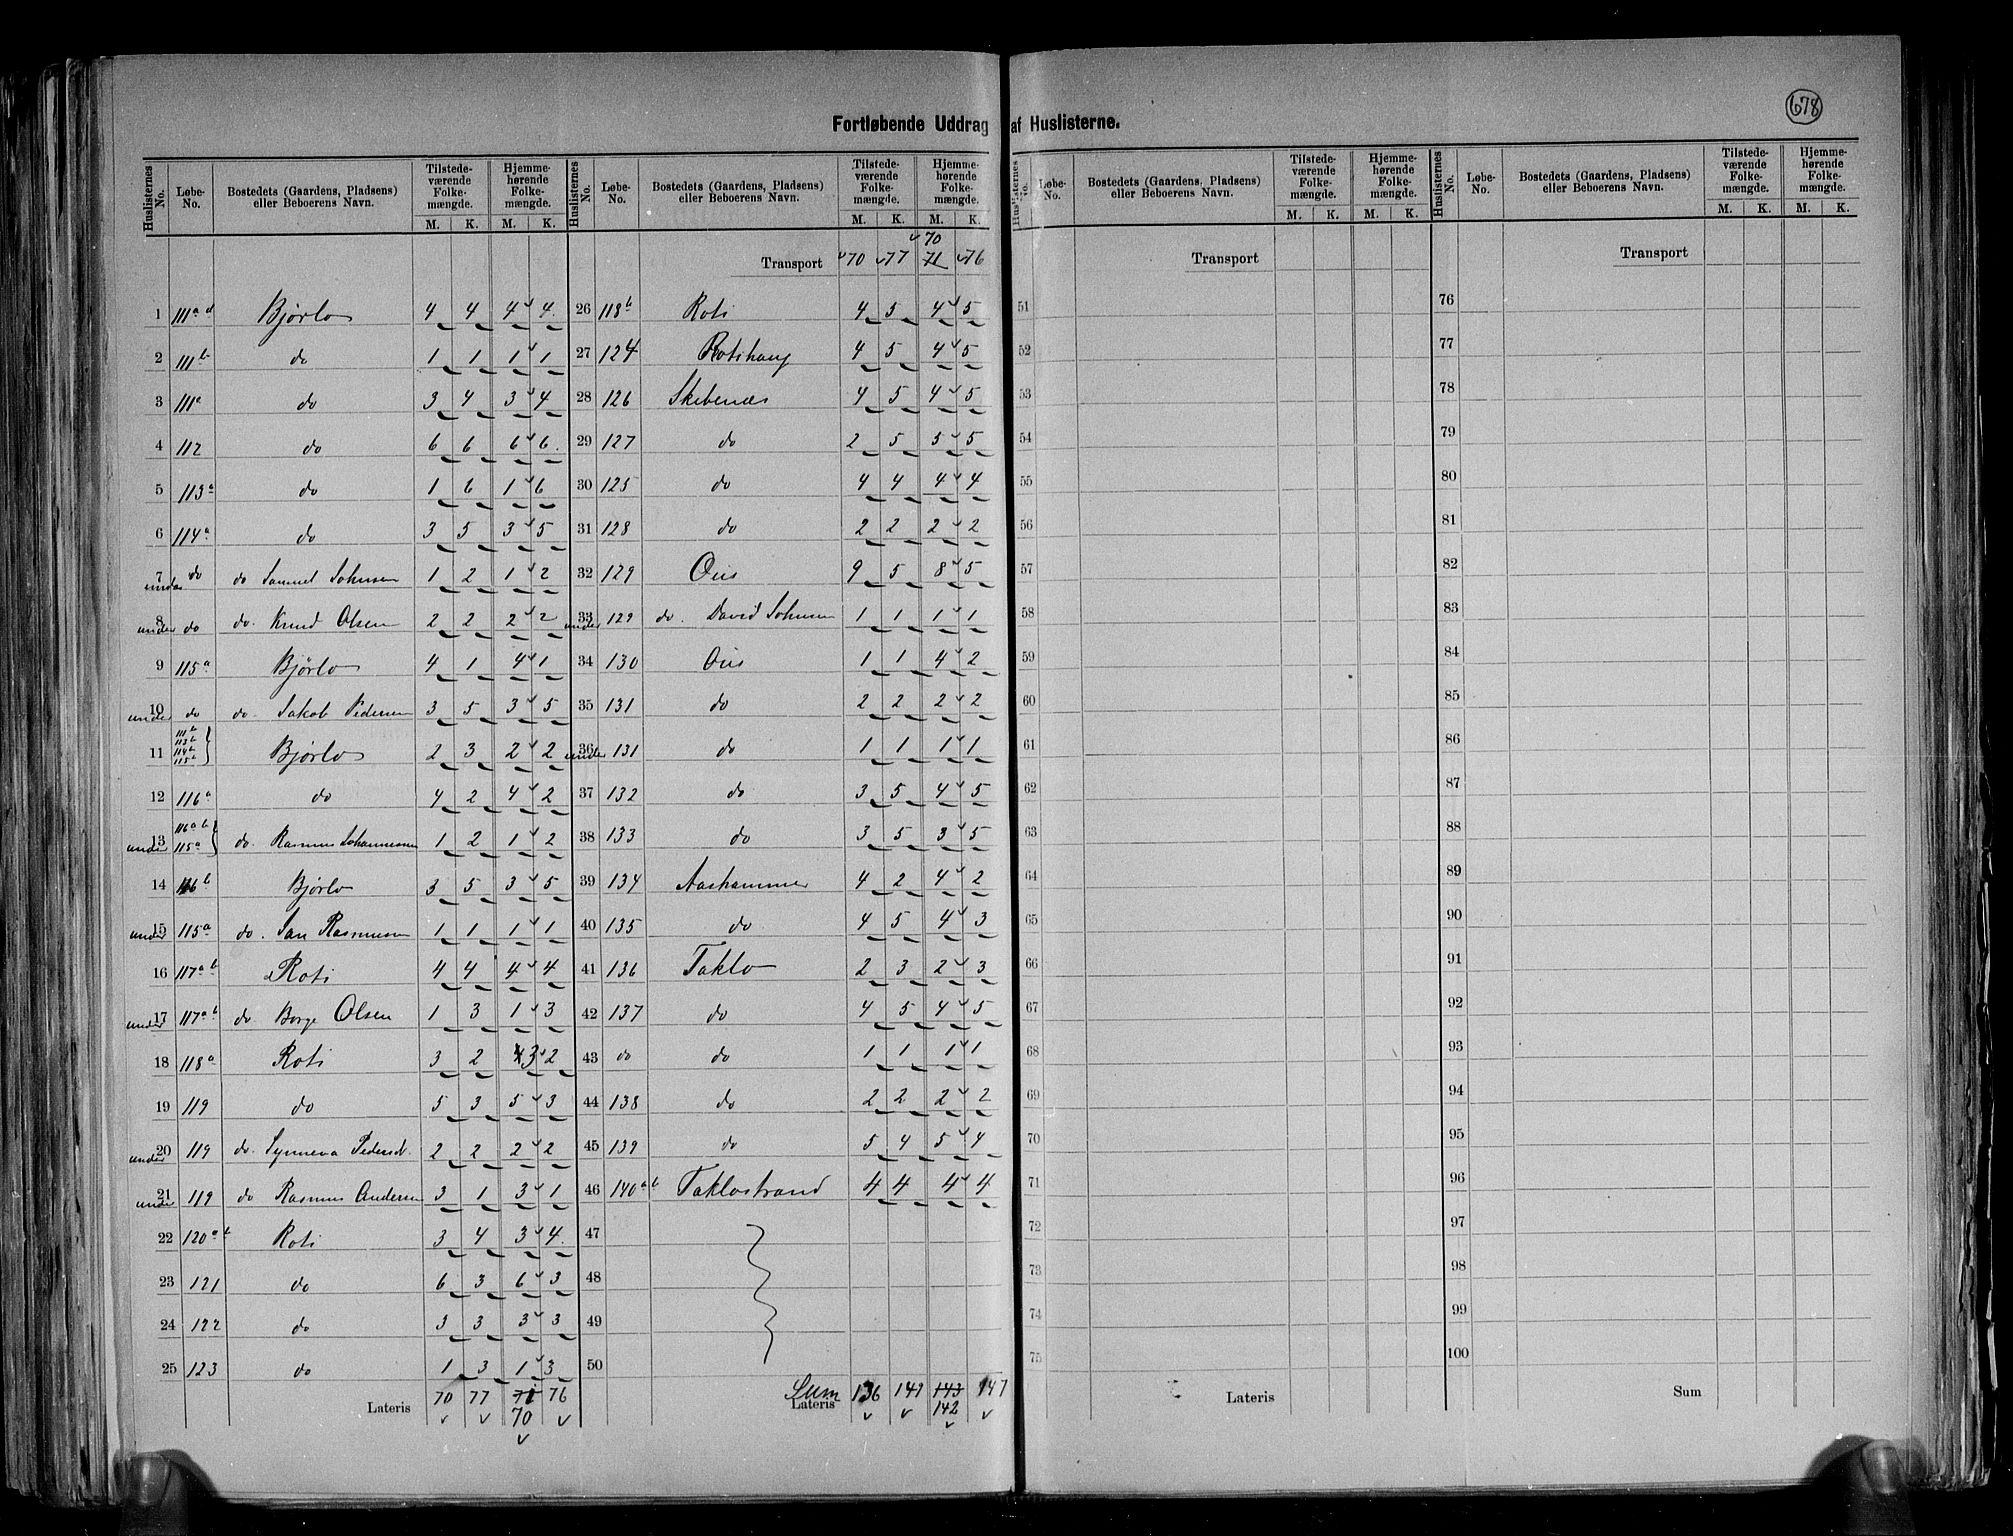 678
Fortløbende Uddrag af Huslisterne.
Huslisternes No. Løbe-No. Bostedets (Gaardens, Pladsens) eller Beboerens Navn. Tilstedeværende Folkemængde. M. K. Hjemmehørende Folkemængde. M. K.
1 111 a d Bjørlo 4 4 4 4
2 111 b do 1 1 1 1
3 111 a do 3 4 3 4
4 112 do 6 6 6 6
5 113 a do 1 6 1 6
6 114 a do 3 5 3 5
7 under do do Samuel Johnsen 1 2 1 2
8 under do do. Knud Olsen 2 2 2 2
9 115 a Bjørlo 4 1 4 1
10 under do do. Jakob Pedersen 3 5 3 5
11 111 b 113 b 114 b 115 b Bjørlo 2 3 2 2
12 116 a do 4 2 4 2
13 under 116 a b 115 a do. Rasmus Johannesen 1 2 1 2
14 116 b Bjørlo 3 5 3 5
15 under 115 a do. Jan Rasmusen 1 1 1 1
16 117 a b Roti 4 4 4 4
17 under 117 a b do Borge Olsen 1 3 1 3
18 118 a Roti 3 2 4 3 2
19 119 do 5 3 5 3
20 under 119 do. Synneva Pedersd. 2 2 2 2
21 under 119 do Rasmus Andersen 3 1 3 1
22 120 a b Roti 3 4 3 4
23 121 do 6 3 6 3
24 122 do 3 3 3 3
25 123 do 1 3 1 3
Lateris 70 77 71 70 76
Huslisternes No. Løbe-No. Bostedets (Gaardens, Pladsens) eller Beboerens Navn. Tilstedeværende Folkemængde. M. K. Hjemmehørende Folkemængde. M. K.
Transport 70 77 70 71 76
26 118 b Roti 4 5 4 5
27 124 Rotihaug 4 5 4 5
28 126 Skibenes 4 5 4 5
29 127 do 2 5 5 5
30 125 do 4 4 4 4
31 128 do 2 2 2 2
32 129 Ous 9 5 8 5
33 under 129 do. David Johnsen 1 1 1 1
34 130 Ous 1 1 4 2
35 131 do 2 2 2 2
36 under 131 do 1 1 1 1
37 132 do 3 5 4 5
38 133 do 3 5 3 5
39 134 Aashammer 4 2 4 2
40 135 do 4 5 4 3
41 136 Taklo 2 3 2 3
42 137 do 4 5 4 5
43 do do 1 1 1 1
44 138 do 2 2 2 2
45 139 do 5 4 5 4
46 140 a b Taklostrand 4 4 4 4
47
48
49
50
Sum Lateris 136 149 143 142 147
Huslisternes No. Løbe-No. Bostedets (Gaardens, Pladsens) eller Beboerens Navn. Tilstedeværende Folkemængde. M. K. Hjemmehørende Folkemængde. M. K.
Transport
51
52
53
54
55
56
57
58
59
60
61
62
63
64
65
66
67
68
69
70
71
72
73
74
75
Lateris
Huslisternes No. Løbe-No. Bostedets (Gaardens, Pladsens) eller Beboerens Navn. Tilstedeværende Folkemængde. M. K. Hjemmehørende Folkemængde. M. K.
Transport
76
77
78
79
80
81
82
83
84
85
86
87
88
89
90
91
92
93
94
95
96
97
98
99
100
Sum